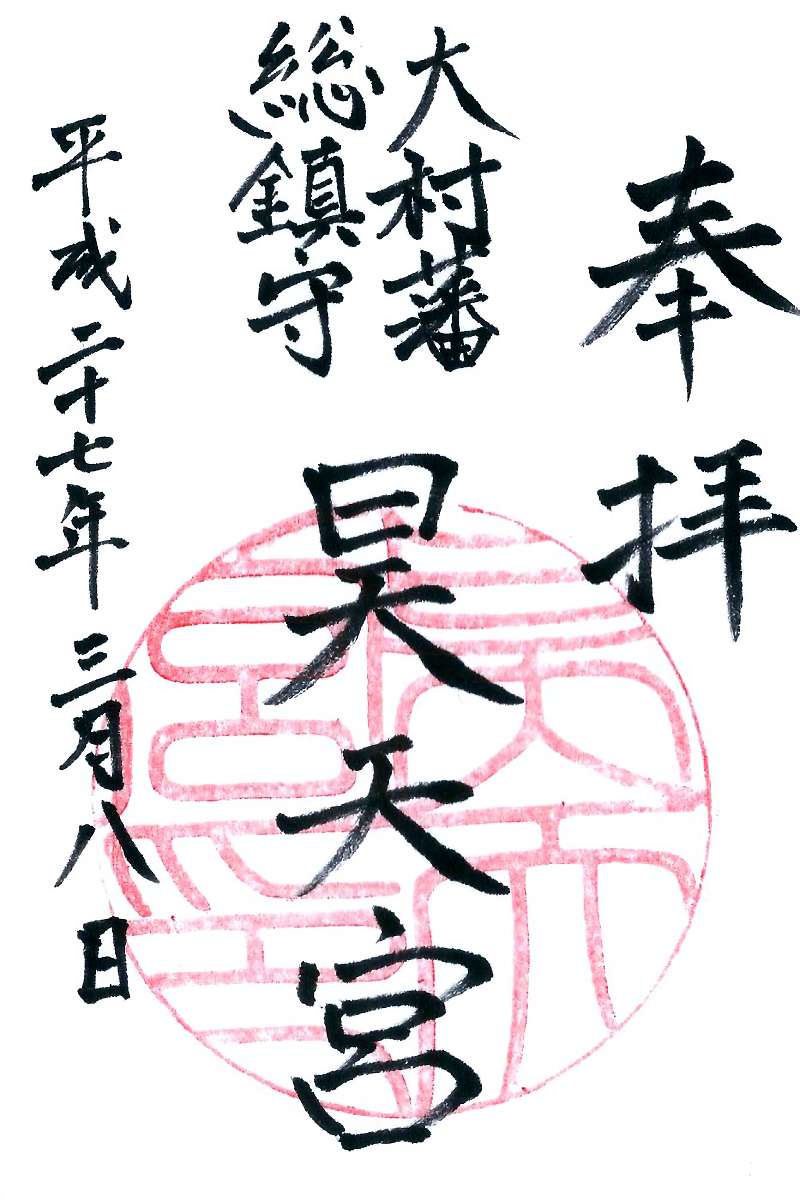 奉拝
大村藩
総鎮守
昊天宮
平成二十七年三月八日